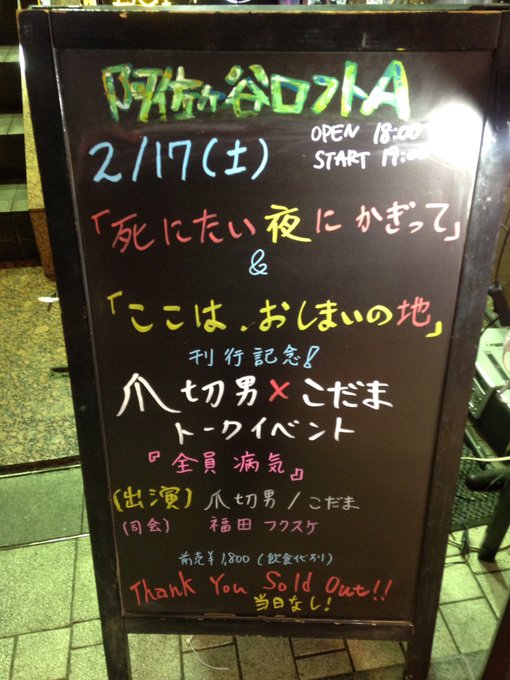 阿佐ヶ谷ロフトA
2/17(土)
OPEN 18:00
START 19:00
「死にたい夜にかぎって」
&
「ここは、おしまいの地」
刊行記念!
爪切男×こだま
トークイベント
『全員病気』
(出演) 爪切男/こだま
(司会) 福田フクスケ
前売¥1,800(飲食代別)
Thank You Sold Out!!
当日なし!